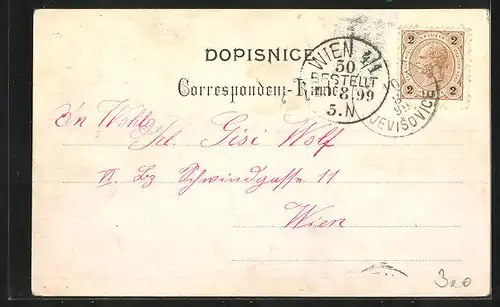 DOPISNICE
Correspondenz-Karte
WIEN 4/1
50
BESTELLT
8 99
5.N
JEVIŠOVICE
2 2
2 2
Frl. Gisi Wolf
VI. Bz Schwindgasse 11
Wien
320